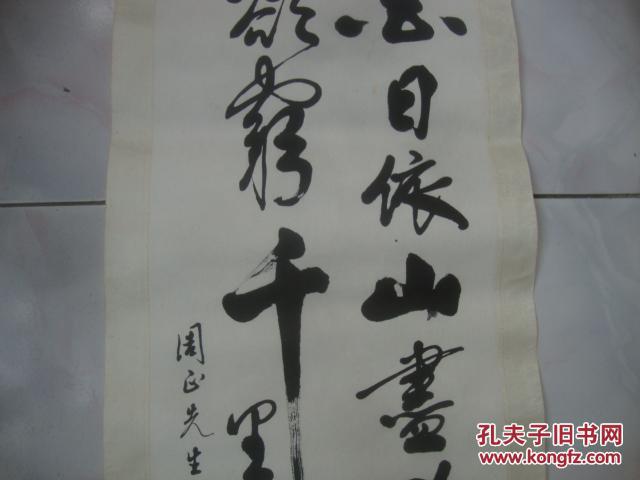 白日依山盡
欲窮千里
周正先生
孔夫子旧书网
www.kongfz.com